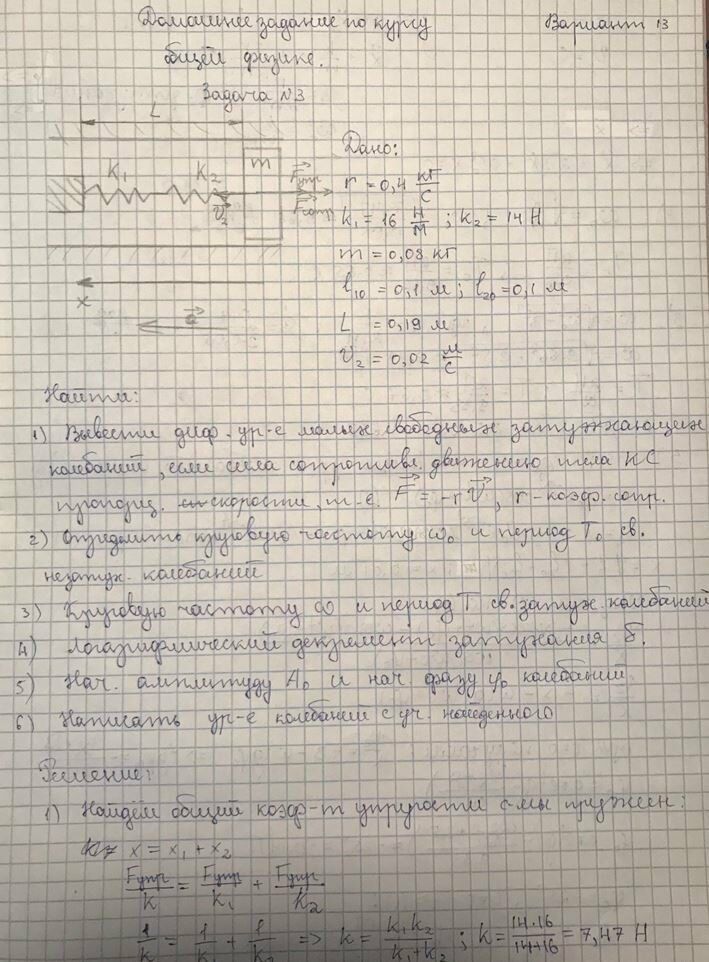 Домашнее задание по курсу Вариант 13
общей физике.
Задача №3
L
K₁ K₂ m
Fупр
Fсопр
V₂
x
a
Дано:
r = 0,4 кг/с
k₁ = 16 Н/м ; k₂ = 14 Н
m = 0,08 кг
l₁₀ = 0,1 м ; l₂₀ = 0,1 м
L = 0,19 м
V₂ = 0,02 м/с
Найти:
1) Вывести диф. ур-е малых свободных затухающих
колебаний, если сила сопротивл. движению тела КС
пропорц. скорости, т-е. F = -rV, r - коэф. сопр.
2) Определить круговую частоту ω₀ и период T₀ св.
незатух. колебаний
3) Круговую частоту ω и период T св. затух. колебаний
4) Логарифмический декремент затухания δ.
5) Нач. амплитуду A₀ и нач. фазу φ₀ колебаний
6) Написать ур-е колебаний с уч. найденного
Решение:
1) Найдём общий коэф-т упругости с-мы пружен:
x = x₁ + x₂
Fупр/k = Fупр/k₁ + Fупр/k₂
1/k = 1/k₁ + 1/k₂ => k = k₁k₂/k₁+k₂ ; k = 14·16/14+16 = 7,47 Н